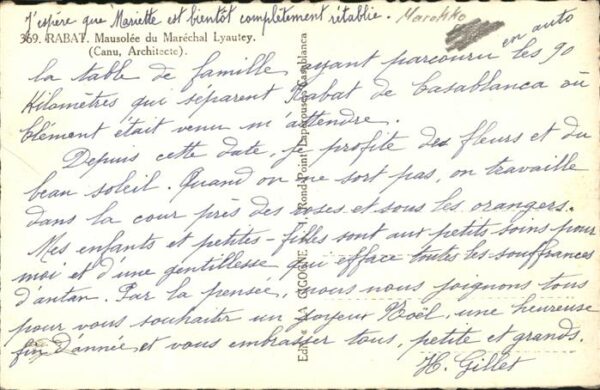 J'espère que Mariette est bientôt complètement rétablie.
Marokko
369. RABAT. Mausolée du Maréchal Lyautey.
(Canu, Architecte).
la table de famille, ayant parcouru en auto les 90
kilomètres qui séparent Rabat de Casablanca où
Clément était venu m'attendre.
Depuis cette date, je profite des fleurs et du
beau soleil. Quand on ne sort pas, on travaille
dans la cour près des roses et sous les orangers.
Mes enfants et petites-filles sont aux petits soins pour
moi et d'une gentillesse qui efface toutes les souffrances
d'antan. Par la pensée, nous nous joignons tous
pour vous souhaiter un joyeux Noël, une heureuse
fin d'année et vous embrasser tous, petits et grands.
H. Gillet
Edit. « LA CIGOGNE » Rond-Point Lapérouse Casablanca